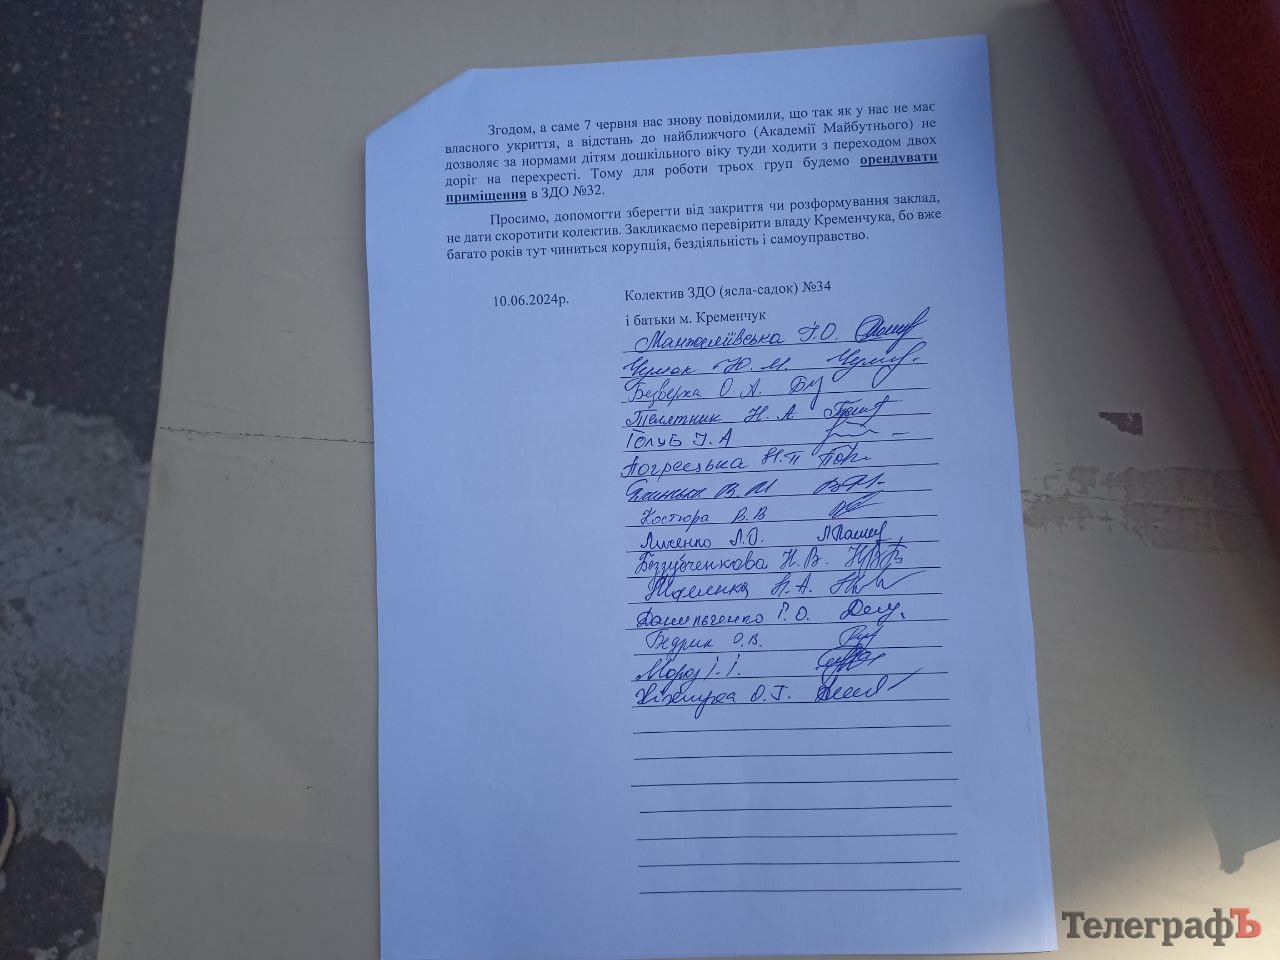 Згодом, а саме 7 червня нас знову повідомили, що так як у нас не має
власного укриття, а відстань до найближчого (Академії Майбутнього) не
дозволяє за нормами дітям дошкільного віку туди ходити з переходом двох
доріг на перехресті. Тому для роботи трьох груп будемо орендувати
приміщення в ЗДО №32.
Просимо, допомогти зберегти від закриття чи розформування заклад,
не дати скоротити колектив. Закликаємо перевірити владу Кременчука, бо вже
багато років тут чиниться корупція, бездіяльність і самоуправство.
10.06.2024р.
Колектив ЗДО (ясла-садок) №34
і батьки м. Кременчук
Г.О.
Чумак Ю.М.
Безверха О.А.
Телятник Н.А.
Голуб І.А
Погрецька Н.П
В.М
Костюра В.В
Л.О.
Беззубченкова Н.В.
Н.А.
Данильченко Г.О.
Бедрик О.В.
Мороз І.І.
О.Г.
ТелеграфЪ